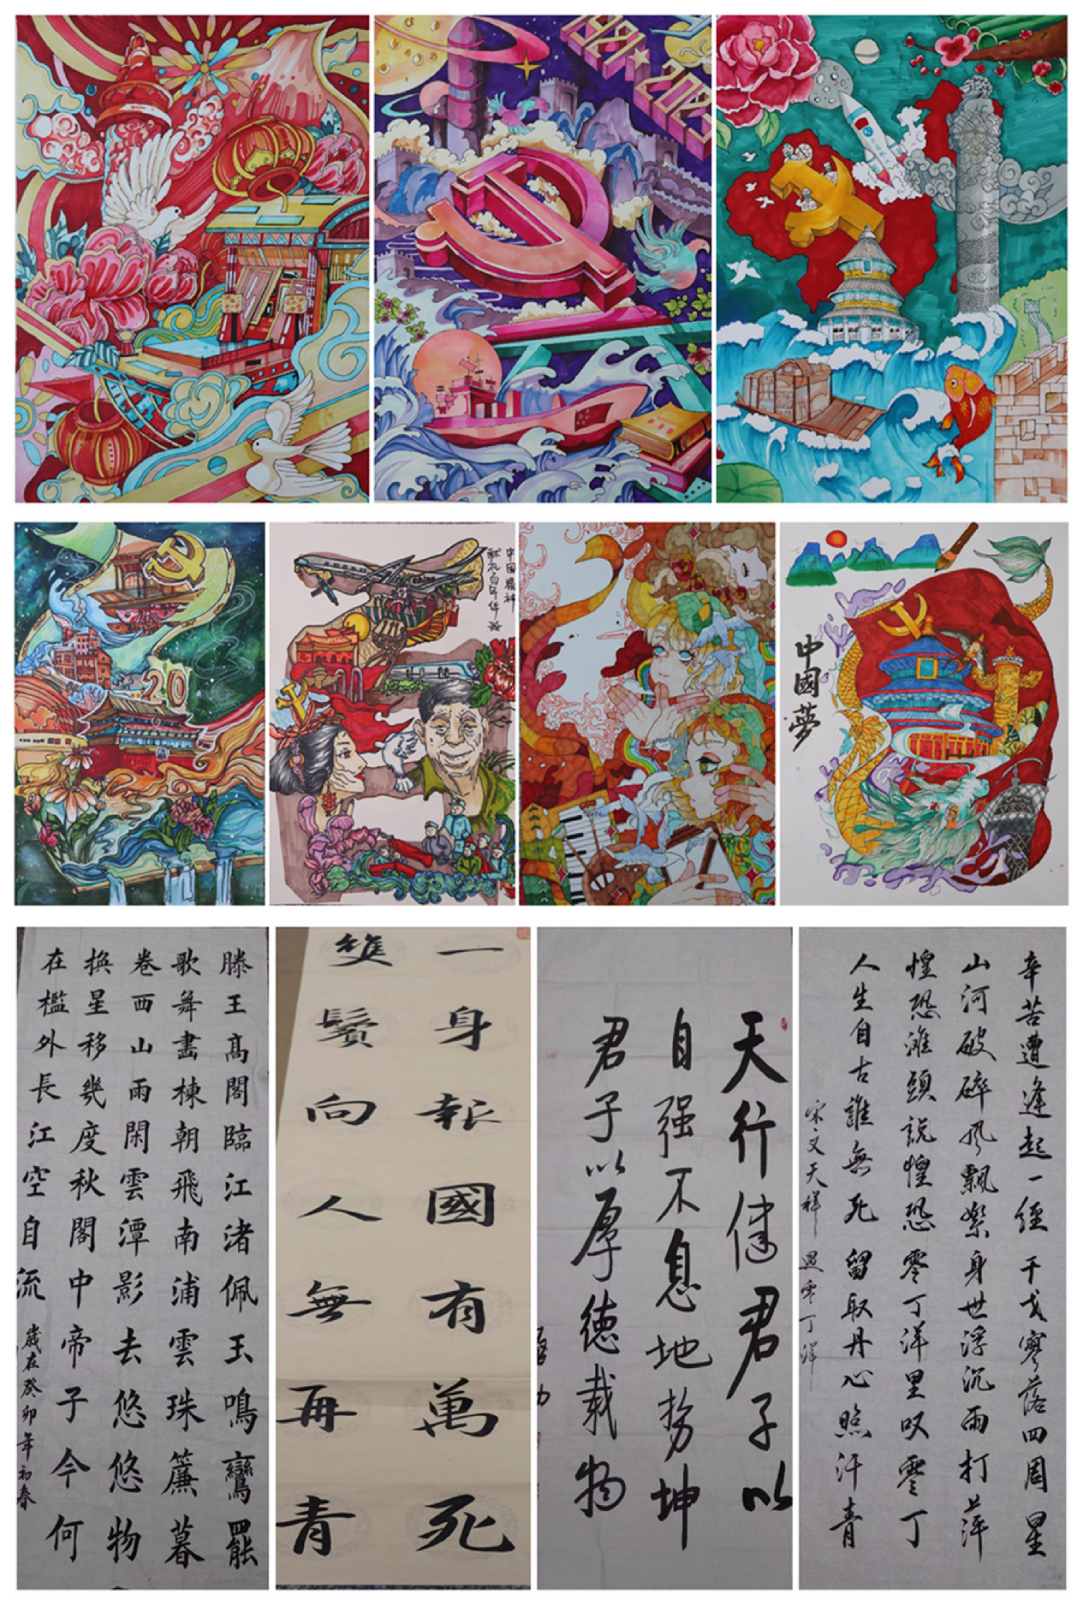 1921★2021
20
中國夢
滕王高閣臨江渚佩玉鳴鸞罷
歌舞畫棟朝飛南浦雲珠簾暮
卷西山雨閑雲潭影去悠悠物
換星移幾度秋閣中帝子今何
在檻外長江空自流
歲在癸卯年初春
一身報國有萬死
雙鬢向人無再青
天行健君子以
自强不息地势坤
君子以厚德载物
辛苦遭逢起一經干戈寥落四周星
山河破碎风飄絮身世浮沉雨打萍
惶恐灘頭説惶恐零丁洋里叹零丁
人生自古誰無死留取丹心照汗青
宋文天祥 過零丁洋